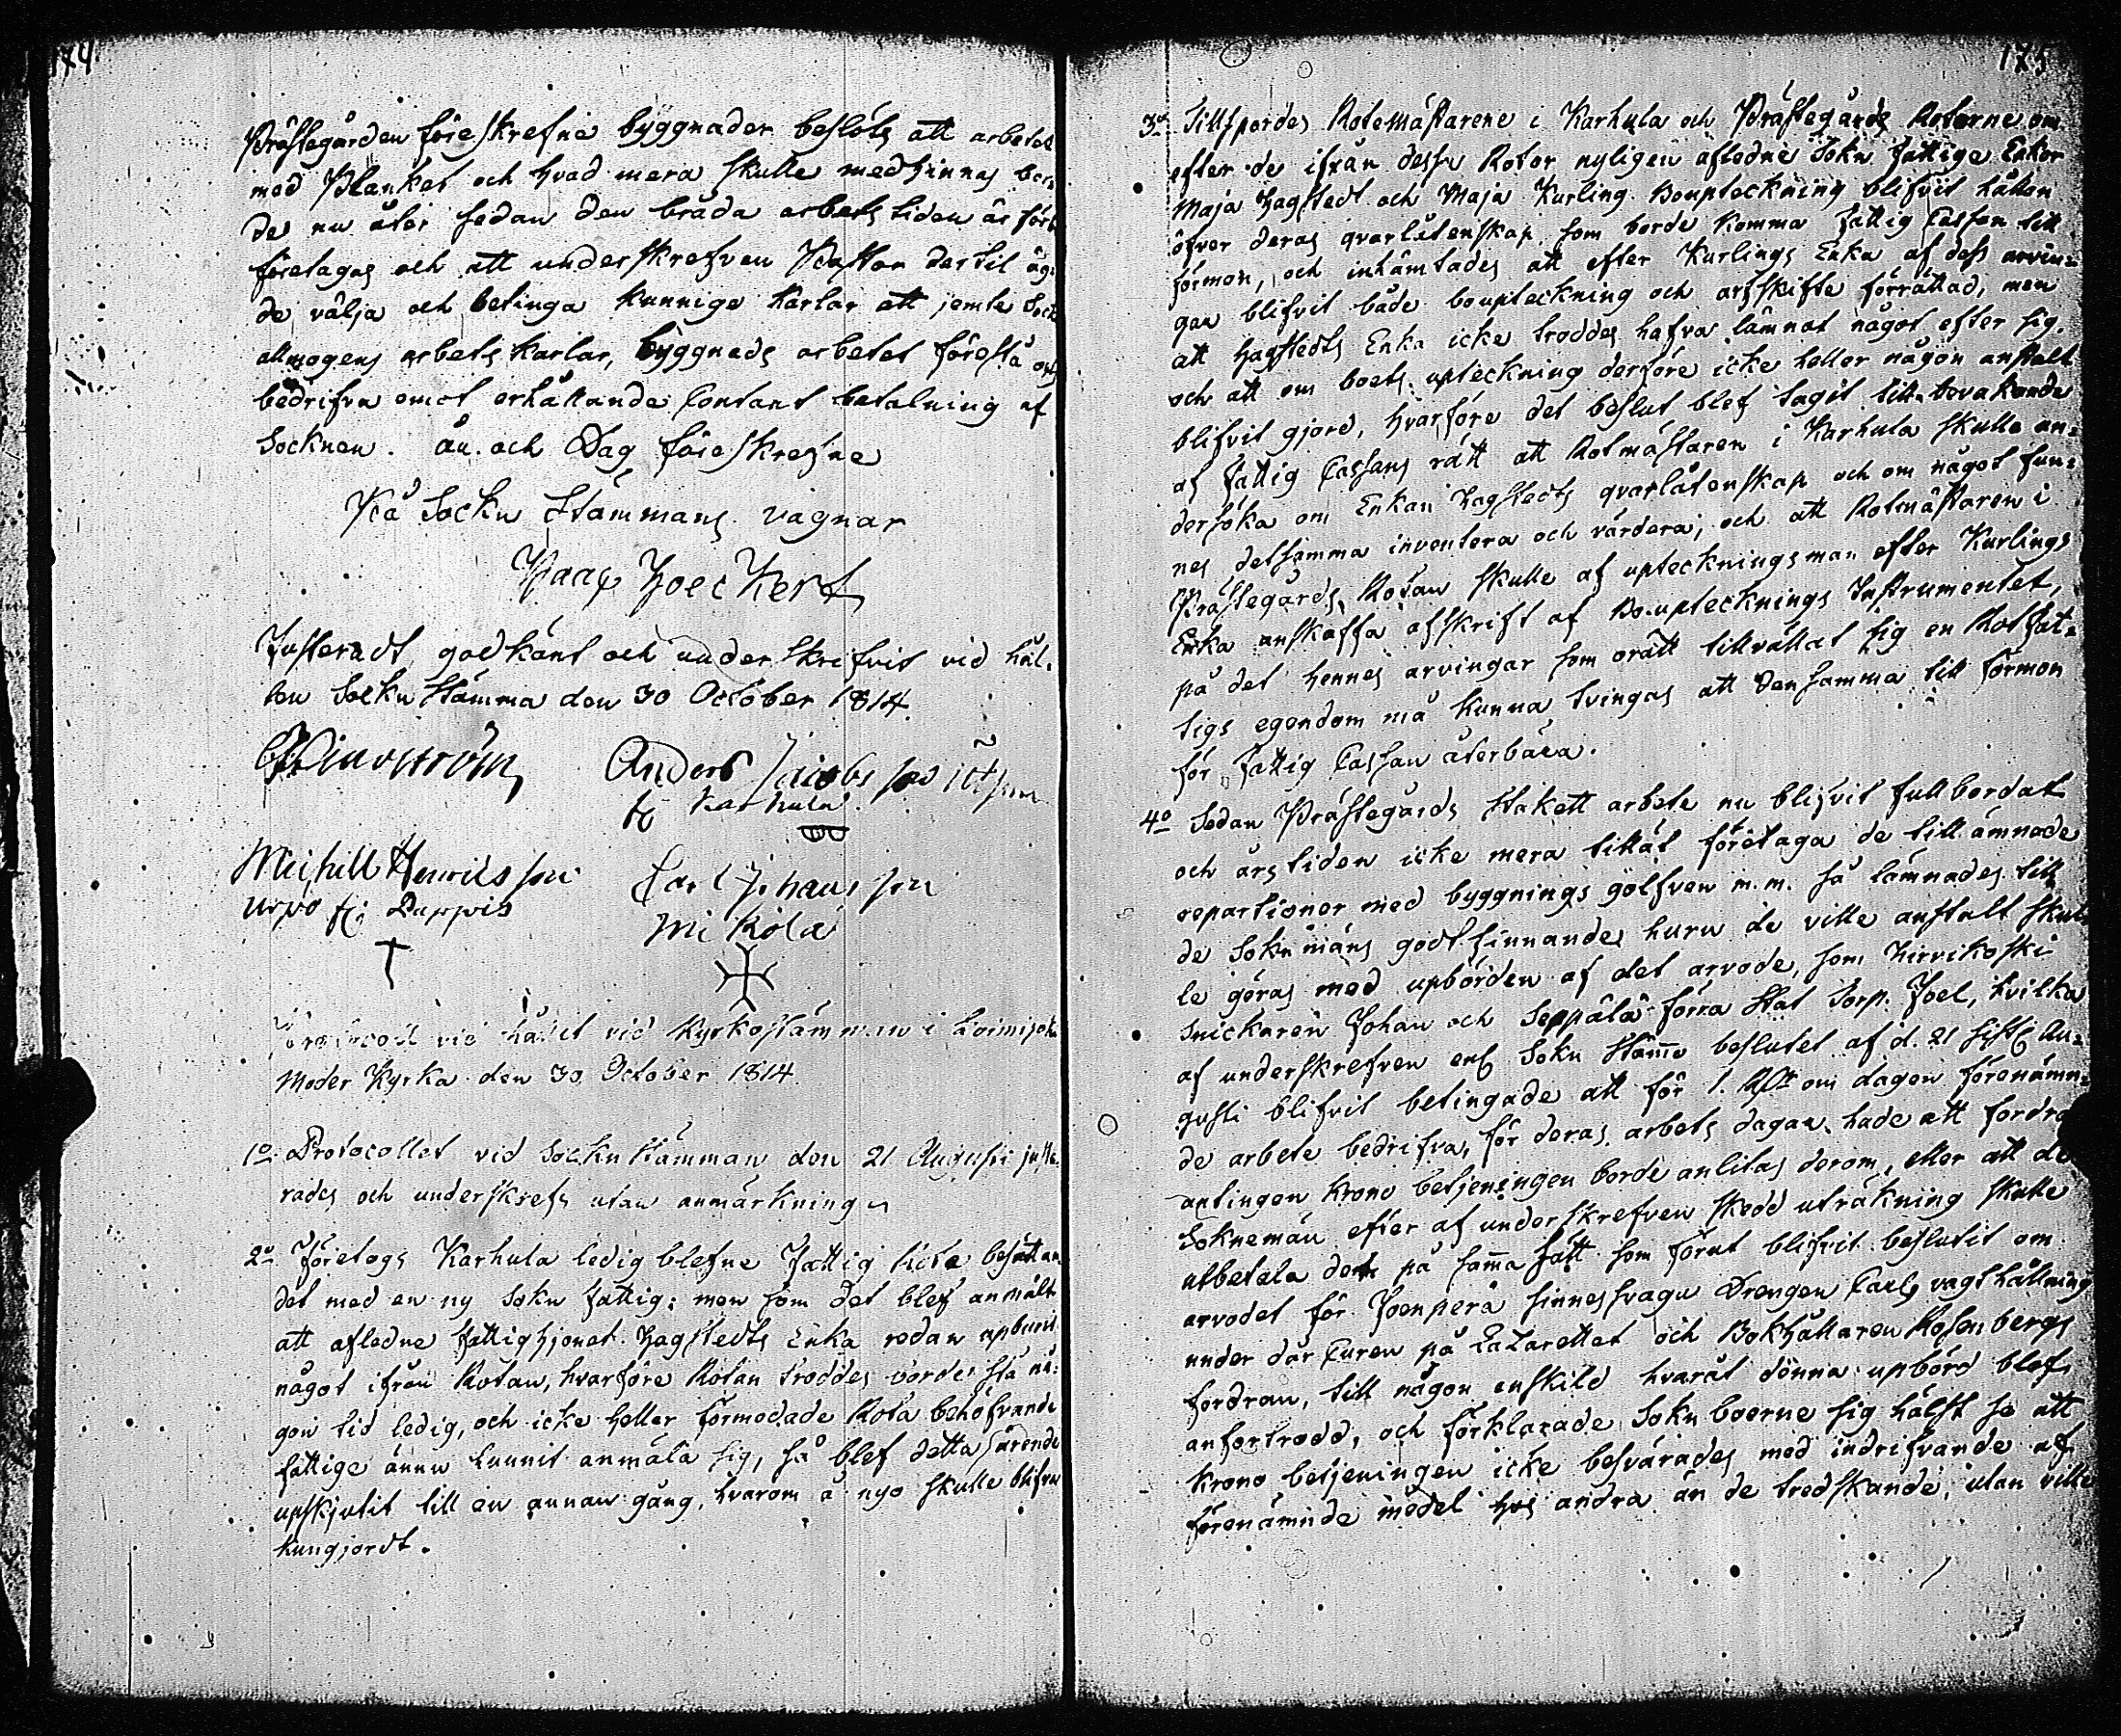 174
Prästegården föreskrefne byggnader beslöts att arbetet
med Planket och hvad mera skulle medhinnas bor-
de nu åter sedan den bråda arbets tiden är förbi
företagas och att underskrefven Pastor dertil äg-
de välja och betinga kunnige Karlar att jemte Sock
allmogens arbets karlar, byggnads arbetet förestå och
bedrifva emot erhållande Contant betalning af
Socknen. År och Dag föreskrefne
På Sockn Stämmans vägnar
Isaac Hoeckert
Justeradt godkänt och underskrifvit vid hål-
len Sockn Stämma den 30 October 1814.
Anders Jacobsson
fr Karhula
Michell Henricsson
Carl Johansson
Mikola
Protocoll vid hållet vid Kyrkostämman i Loimijoki
Moder Kyrka den 30 October 1814
1o Protocollet vid Sockn Stämman den 21 Augusti juste-
rades och underskrefs utan anmärkning
2o Företogs Karhula ledig blefne Fattig besättan
det med en ny Sokn fattig; men som det blef anmält
att afledne fattighjonet Hagstedts Enka redan upburit
något ifrån Rotan, hvarföre Rotan troddes borde stå nå-
gon tid ledig, och icke heller förmodade Rota behöfvande
fattige ännu hunnit anmäla sig, så blef detta ärende
upskjutit till en annan gång, hvarom å nyo skulle blifva
kungjordt.
175
3o Tillspordes Rotemästarene i Karhula och Prästegårds Rotarne om
efter de ifrån dessa Rotor nyligen afledne Sokn fattige Enkor
Maja Hagstedt och Maja Kurling Boupteckning blifvit hållen
öfver deras qvarlåtenskap som borde komma fattig Cassan till
förmon, och inhämtades att efter Kurlings Enka af dess arvin-
gar blifvit både boupteckning och arfskifte förrättad, men
att Hagstedts Enka icke troddes hafva lämnat något efter sig.
och att om boets upteckning derföre icke heller någon anstalt
blifvit gjord, hvarföre det beslut blef tagit till bevakande
af fattig Cassans rätt att Rotmästaren i Karhula skulle un-
dersöka om Enkan Hagstedts qvarlåtenskap och om något fun-
nes detsamma inventera och värdera; och att Rotmästaren i
Prästegårds Rotan skulle af uptecknings man efter Kurlings
Enka anskaffa afskrift af Bouptecknings Instrumentet,
på det hennes arvingar som orätt tillvällat sig en Rotfat-
tigs egendom må kunna tvingas att densamma till förmon
för fattig Cassan återbära.
4o Sedan Prästegårds Stakett arbete nu blifvit fullbordat
och årstiden icke mera tillåt företaga de tillämnade
reparationer med byggnings golfven m.m. så lämnades till
de Soknemäns godtfinnande huru de ville anstalt skul-
le göras med upbörden af det arvode, som Hirvikoski
snickaren Johan och Seppälä förra Stat Torp. Joel, hvilka
af underskrefven enl Sokn Stämmo beslutet af d. 21 sistl Au-
gusti blifvit betingade att för 1. om dagen förenämn-
de arbete bedrifva, för deras arbets dagar hade att fordra
antingen krono betjeningen borde anlitas derom, eller att de
Soknemän efter af underskrefven skedd uträkning skulle
utbetala det på samma sätt som förut blifvit beslutit om
arvodet för Joenperä sinnessvaga Drengen Carls vagthållning
under där Curen på Lazarettet och Bokhållaren Rosenbergs
fordran, till någon enskild hvaråt denna upbörd blef
anförtrodd, och förklarade Sokn boerne sig hälst se att
krono betjeningen icke besvärades med indrifvande af
förenämnde medel hos andra än de tredskande, utan ville